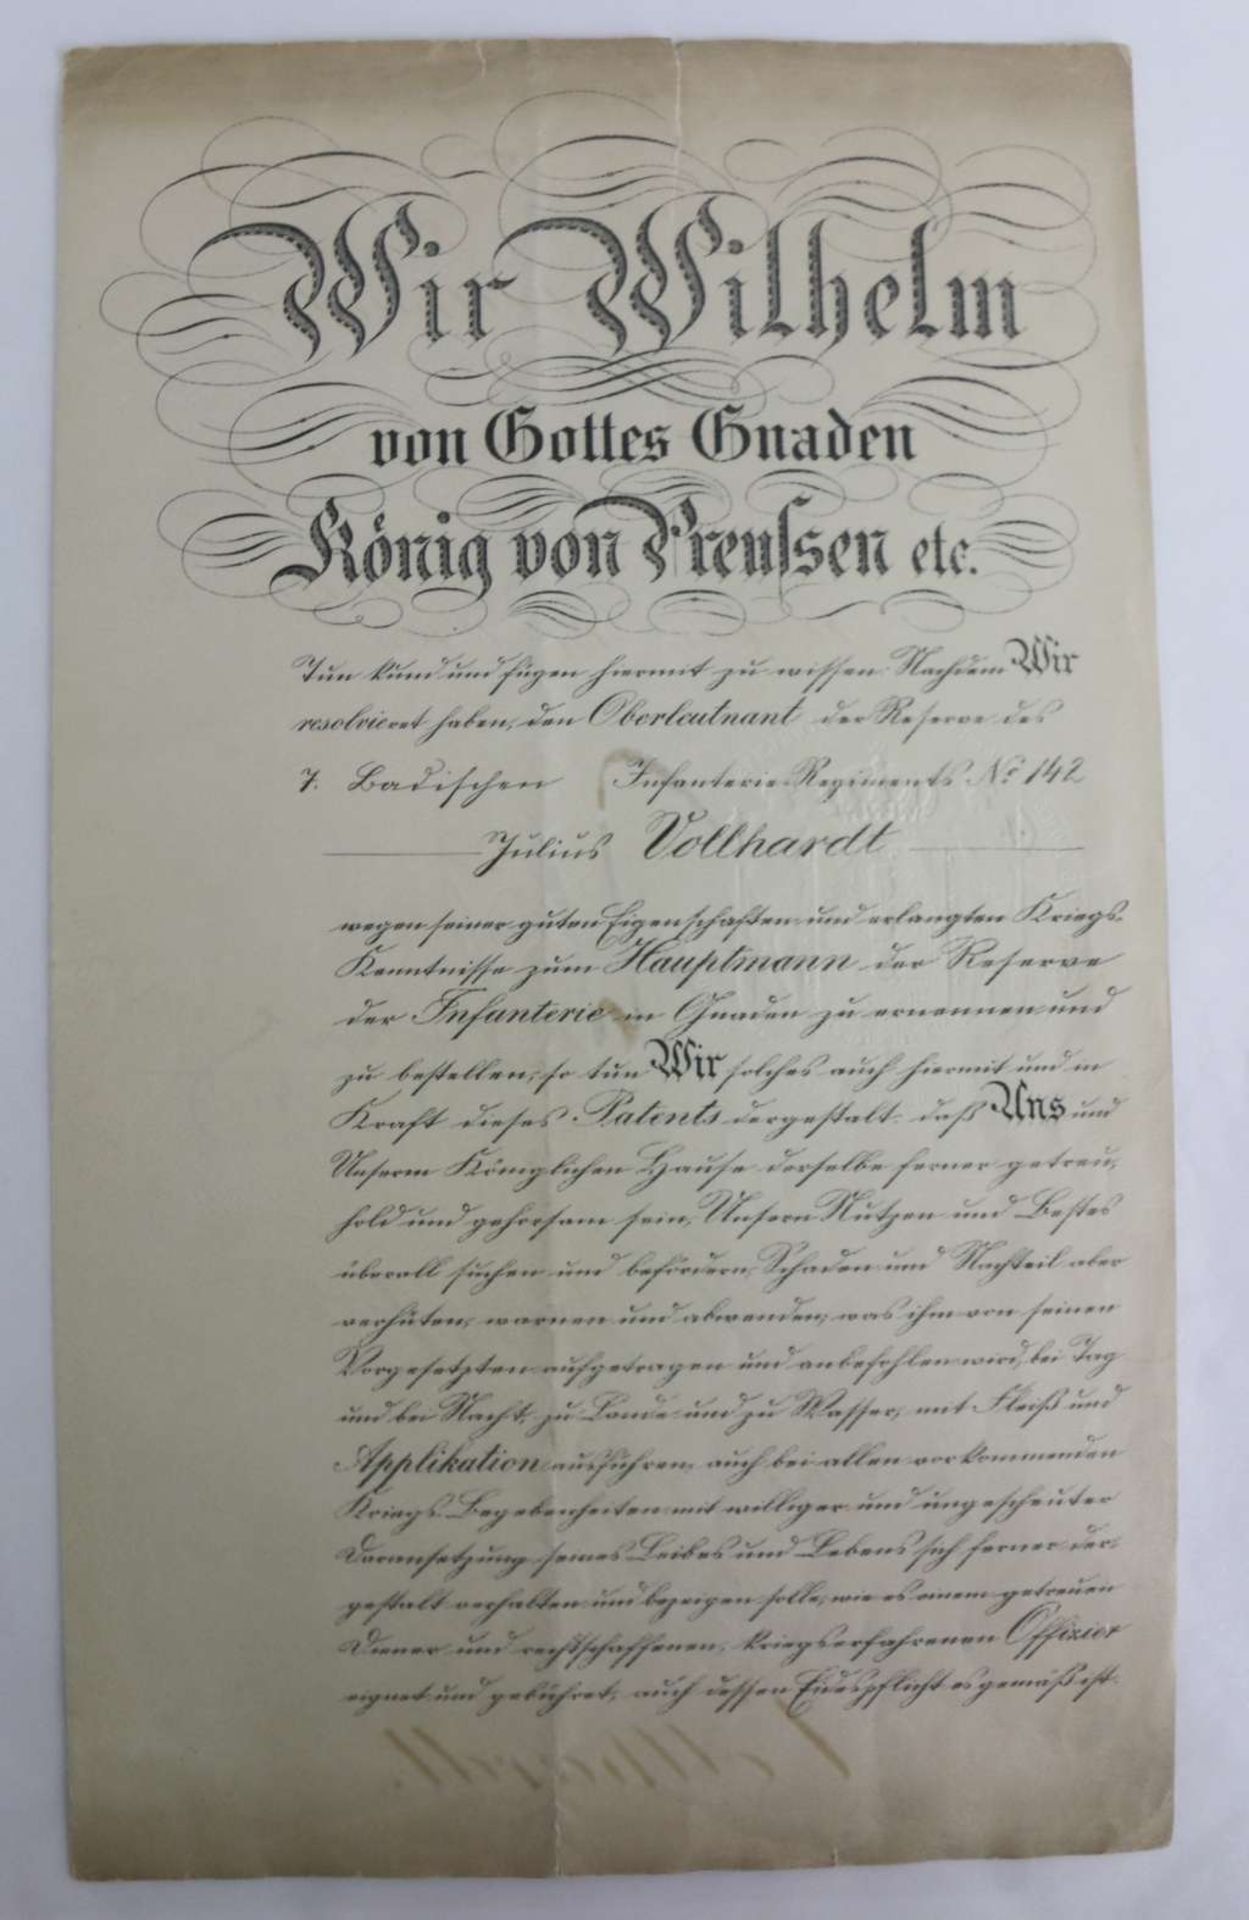 Wir Wilhelm
von Gottes Gnaden
König von Preussen etc.
Tun kund und fügen hiermit zu wissen: Nachdem Wir
resolvieret haben, den Oberleutnant der Reserve des
7. Badischen Infanterie-Regiments No 142
Julius Vollhardt
wegen seiner guten Eigenschaften und erlangten Kriegs-
Kenntnisse zum Hauptmann der Reserve
der Infanterie in Gnaden zu ernennen und
zu bestellen; so tun Wir solches auch hiermit und in
Kraft dieses Patents dergestalt, daß Uns und
Unserm Königlichen Hause derselbe ferner getreu,
hold und gehorsam sein, Unsern Nutzen und Bestes
überall suchen und befördern, Schaden und Nachteil aber
verhüten, warnen und abwenden; was ihm von seinen
Vorgesetzten aufgetragen und anbefohlen wird, bei Tag
und bei Nacht, zu Lande und zu Wasser, mit Fleiß und
Applikation ausführen, auch bei allen vorkommenden
Kriegs-Begebenheiten mit williger und ungescheuter
Daransetzung seines Leibes und Lebens sich ferner der-
gestalt verhalten und bezeigen solle, wie es einem getreuen
Diener und rechtschaffenen, kriegserfahrenen Offizier
eignet und gebühret, auch dessen Eidespflicht es gemäß ist.